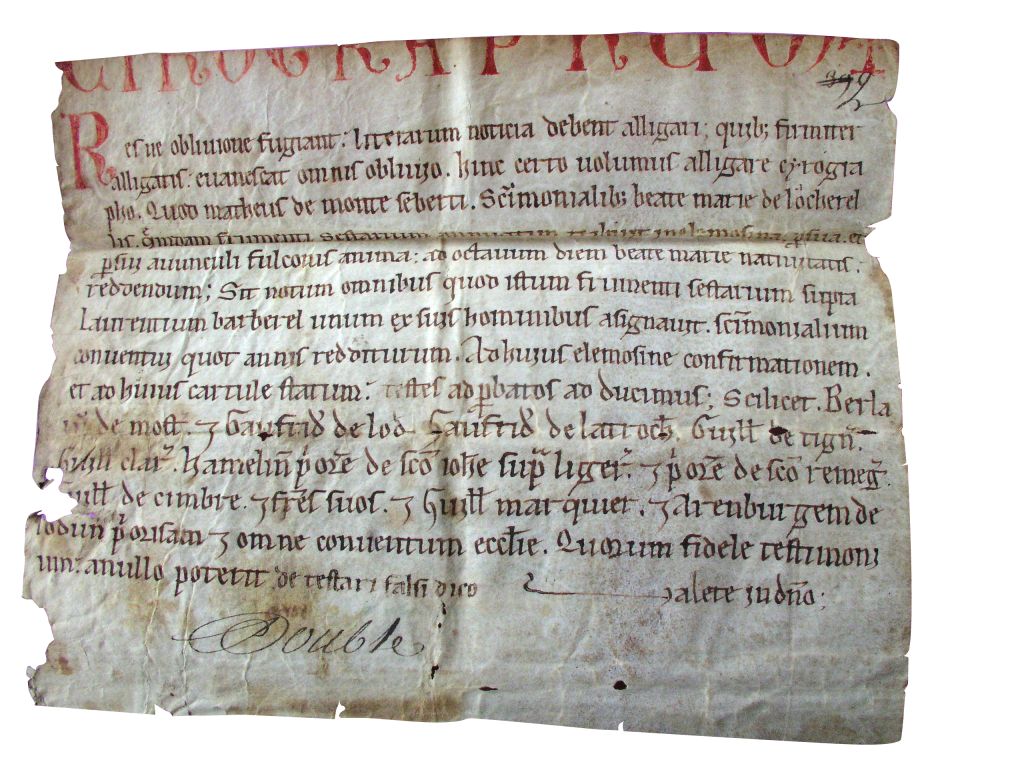 CIROGRAPHUM
392
Res ne oblivione fugiant: literarum noticia debent alligari; quib; firmiter
alligatis: evanescat omnis oblivio. hinc certo volumus alligare cyrogra
pho. Quod matheus de monte sebetti. Scimonialib; beate marie de locherel
lis. frumenti sestarium in elemosina
psui avunculi fulcouis anima: ad octauum diem beate marie natiuitatis.
reddendum; Sit notum omnibus quod istum frumenti sestarium supra
Laurentium barberel unum ex suis hominibus asignavit. scimonialium
conventui quot annis redditurum. Ad huius elemosine confirmationem.
et ad huius cartule statum: testes adpbatos ad ducimus; Scilicet. Berla
de most. ⁊ Gaufrid de lod. Gaufrid de la roch. Guill de tign.
Guill clar. hamelin pore de sco iohe supra liger. ⁊ pore de sco remeg.
Guill de cimbre. ⁊ fres suos. ⁊ Guill marquier. ⁊ Arenburgem de
lodun porissam ⁊ omne conventum ecclie. Quorum fidele testimoni
um: a nullo poterit de testari falsi dico valete in dno;
Double